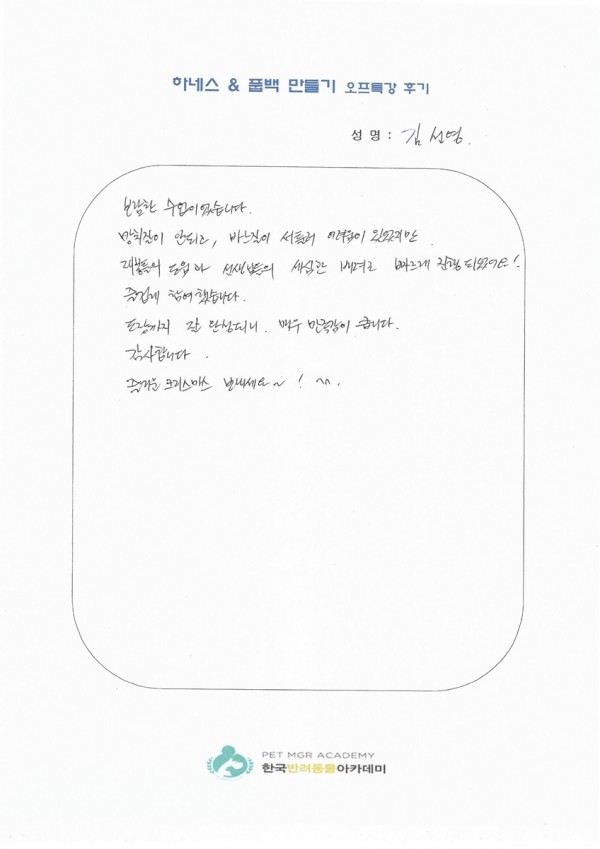 하네스 & 풉백 만들기 오프특강 후기
성 명 : 김선영.
보람찬 수업이었습니다.
망치질이 안되고, 바느질이 서툴러 어려움이 있었지만
재봉틀의 도움과 선생님들의 세심한 배려로 빠르게 진행 되었어요!
즐겁게 참여했습니다.
포장까지 잘 완성되니, 매우 만족감이 큽니다.
감사합니다.
즐거운 크리스마스 보내세요~! ^^.
PET MGR ACADEMY
한국반려동물아카데미